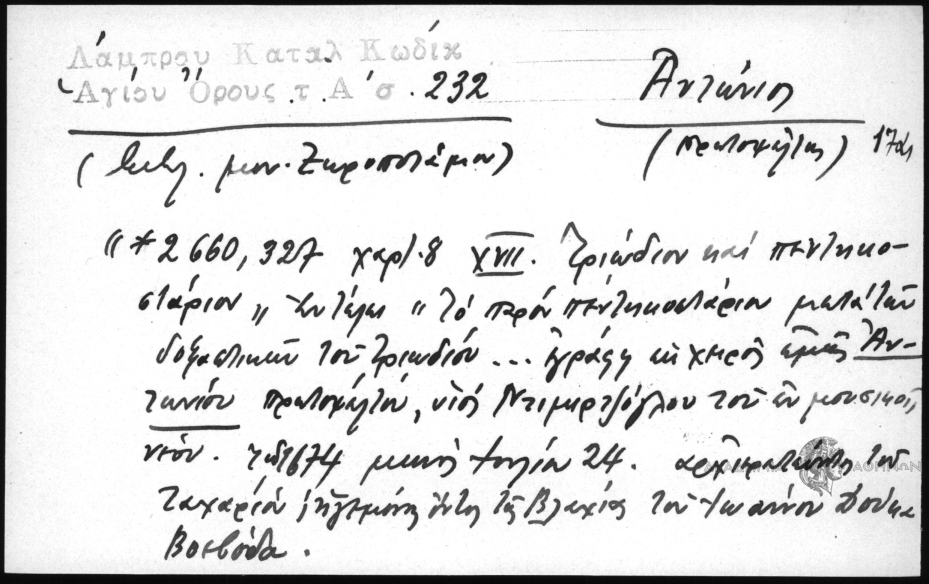 Λάμπρου Καταλ Κωδίκ
Ἁγίου Ὄρους τ. Α΄ σ. 232
Ἀντώνιος
(Βιβλ. μον. Ξηροποτάμου)
(πρωτοψάλτης) 17ος
"*2660, 327 χαρτ. 8 XVII. Τριώδιον καί πεντηκο-
στάριον " Ἐν τέλει " Τό παρόν πεντηκοστάριον μετά τῶν
δοξαστικῶν τοῦ τριωδίου ... ἐγράφη ἐκ χειρός ἐμοῦ Ἀν-
τωνίου πρωτοψάλτου, υἱός Ντιμιρτζόγλου τοῦ ἐν μουσικοῖς
νέου. 1674 μηνός Ἰουλίου 24. ἀρχιερατεύοντος τοῦ
Ζαχαρίου, ἡγεμόνος ὄντος τῆς Βλαχίας τοῦ Ἰωάννου Δούκα
Βοεβόδα.